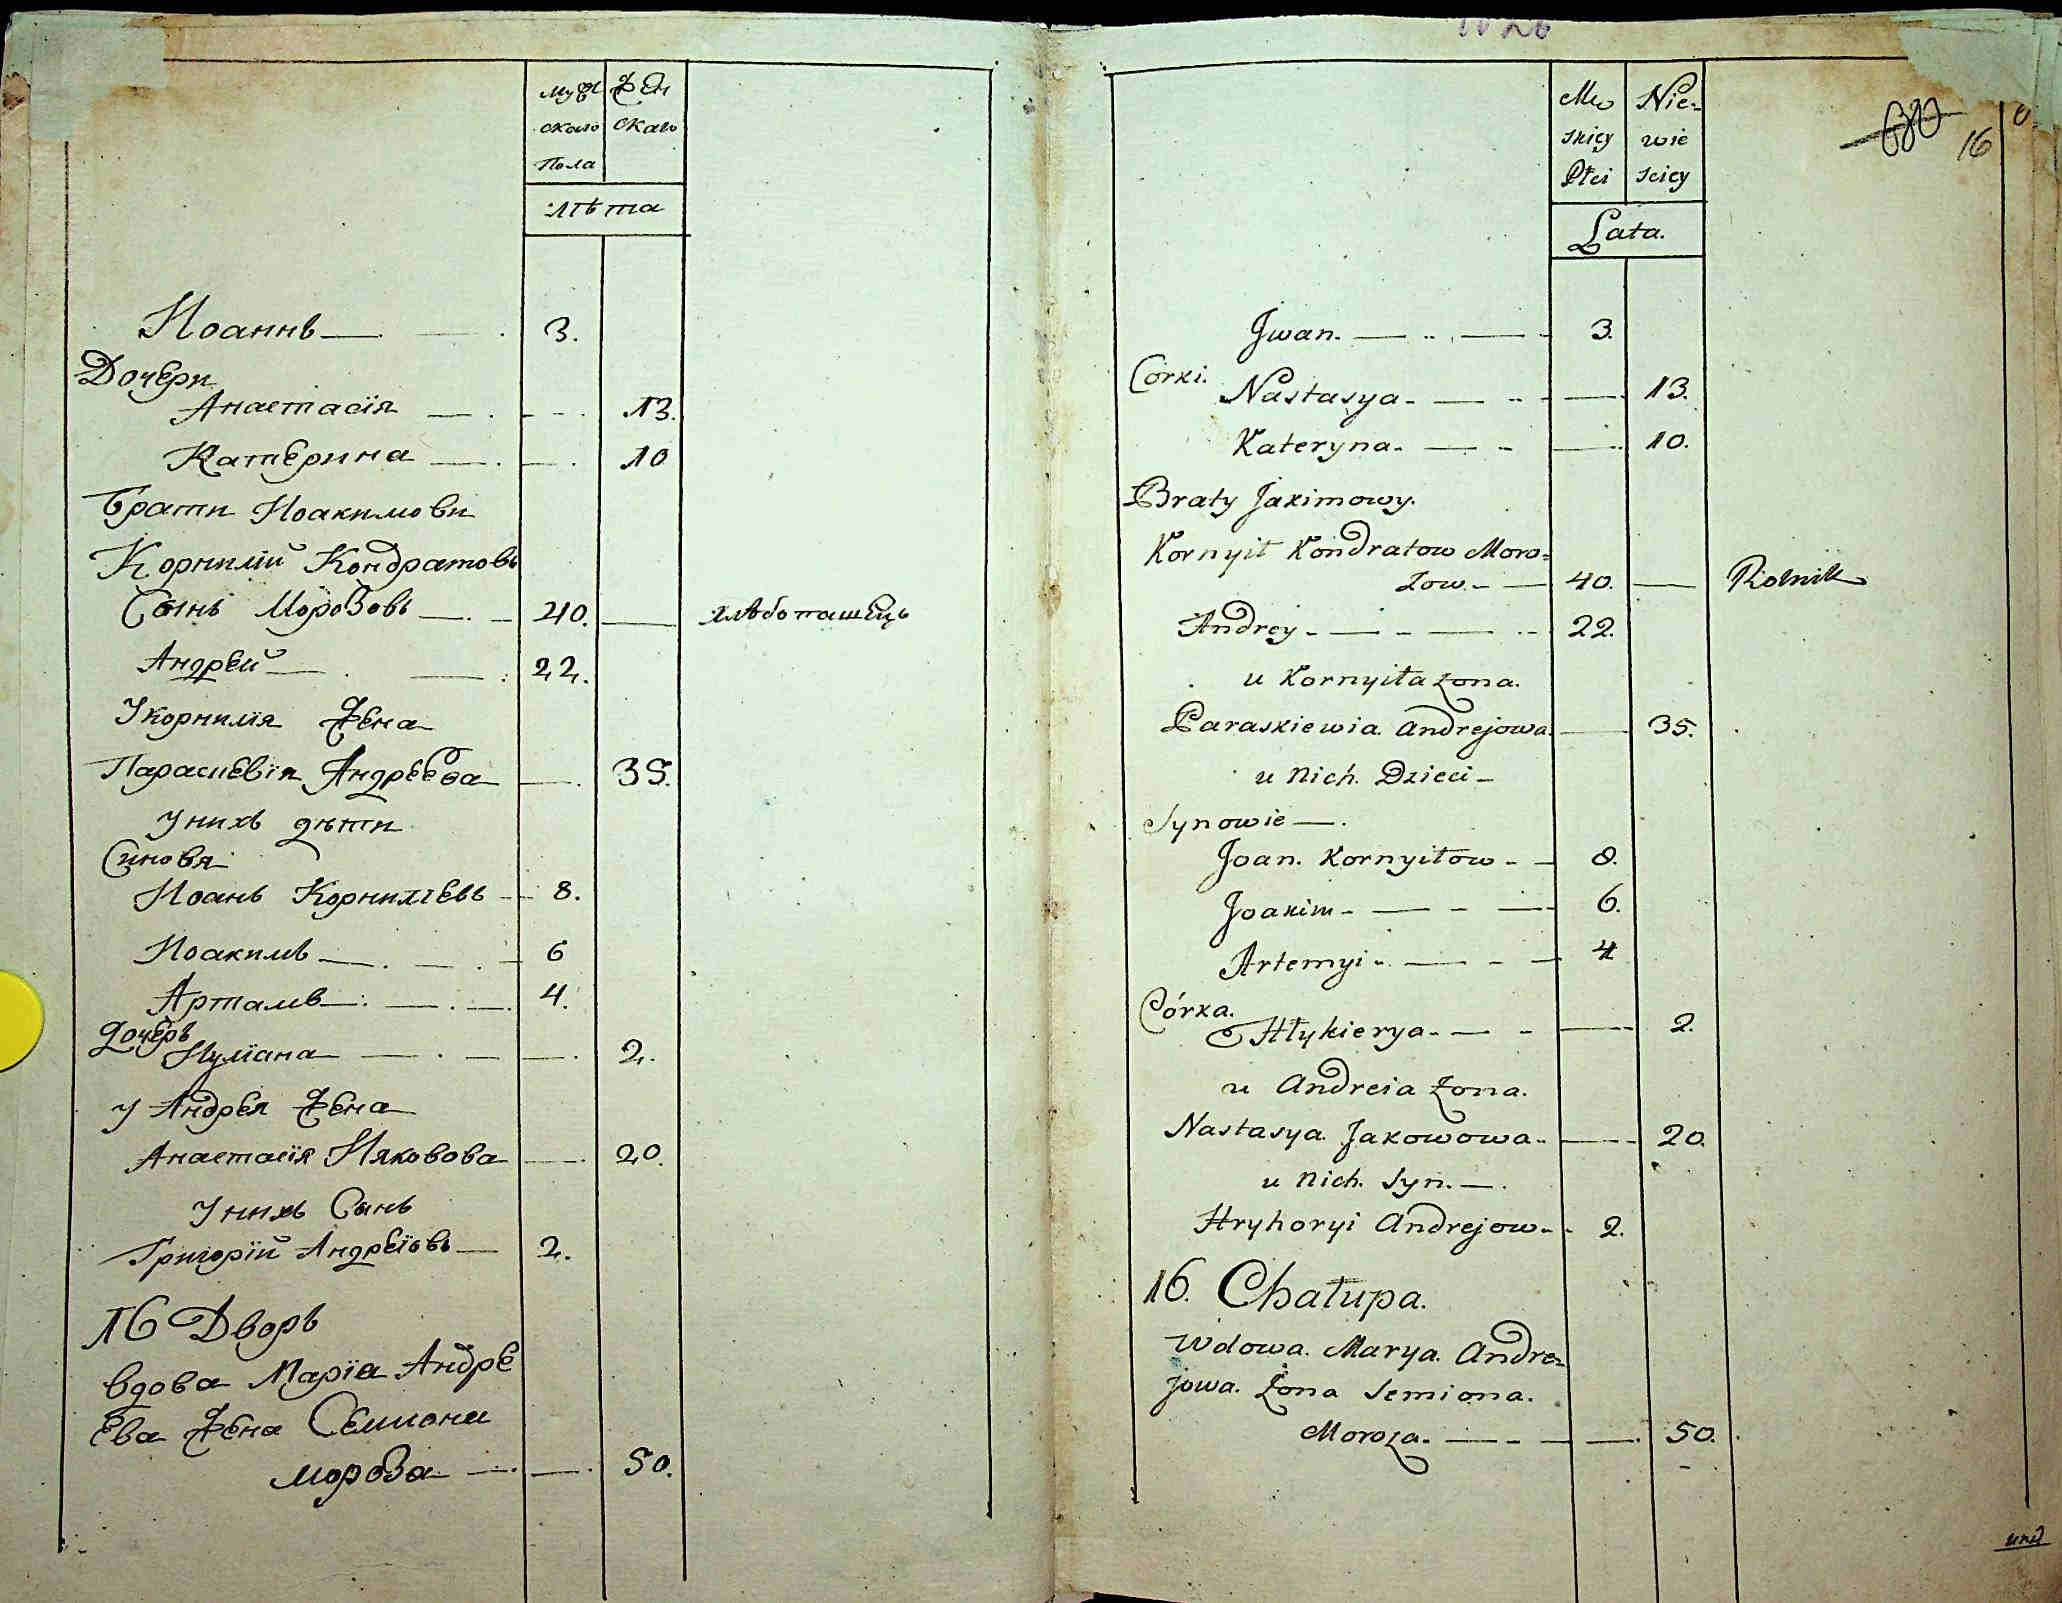 муж Жен
скаго скаго
Пола
лѣта
Иоаннъ 3.
Дочери
Анастасїя 13.
Катерина 10
Брати Иоакимови
Корнилїй Кондратовъ
Сынъ Морозовъ 40. хлѣбопашецъ
Андрей 22.
У Корнилїя Жена
Параскевїя Андреева 35.
У нихъ дѣти
Синовя
Иоанъ Корнилїевъ 8.
Иоакимъ 6
Артамъ 4.
Дочеръ
Иулїана 2.
у Андрея Жена
Анастасїя Ияковова 20.
У нихъ Сынъ
Григорїй Андреїовъ 2.
16 Дворъ
вдова Марїа Андре
ева Жена Семиона
Мороза 50.
16
Mę Nie-
skiey wie
Płci sciey
Lata.
Jwan. 3.
Córki.
Nastasya 13.
Kateryna 10.
Braty Jakimowy.
Kornyił Kondratow Moro=
zow. 40. Rolnik
Andrey 22.
u Kornyiła żona.
Paraskiewia Andrejowa 35.
u Nich. Dzieci
Synowie
Joan. Kornyiłow 8.
Joakim 6.
Artemyi 4
Córka.
Hłykierya 2.
u Andreia żona.
Nastasya Jakowowa 20.
u Nich. Syn.
Hryhoryi Andrejow 2.
16. Chałupa.
Wdowa. Marya. Andre=
jowa. żona Semiona.
Moroza 50.